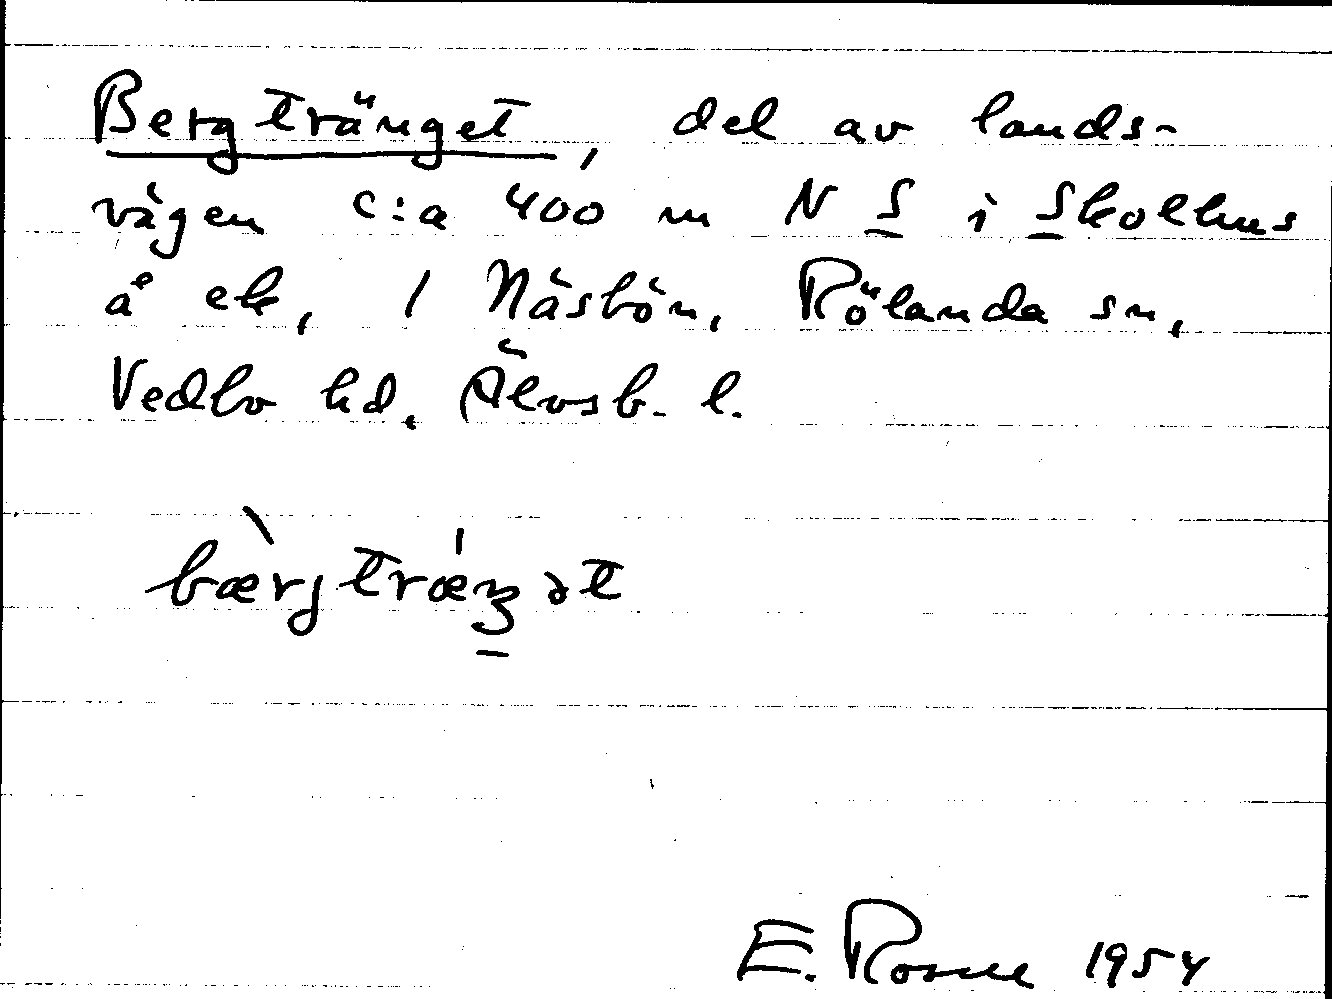 Bergtränget, del av lands-
vägen c:a 400 m N S i Skolhus
å ek, 1 Näsbön, Rölanda sn,
Vedbo hd. Älvsb. l.
bærjtræŋət
E. Rosell 1954